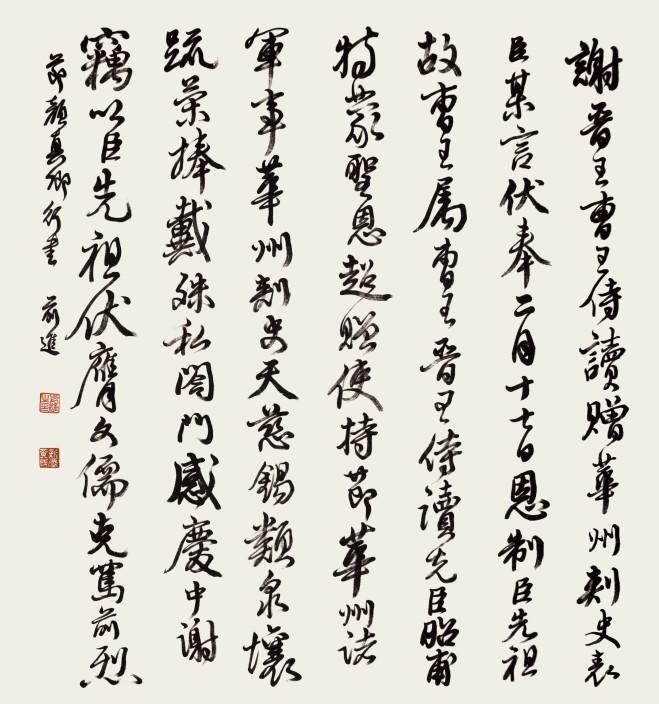 謝晉王曹王侍讀贈華州刺史表
臣某言伏奉二月十七日恩制臣先祖
故曹王属曹王晉王侍讀先臣昭甫
特蒙聖恩超贈使持節華州諸
軍事華州刺史天慈錫類泉壤
疏榮捧戴殊私闔門感慶中謝
竊以臣先祖伏膺文儒克篤前烈
節顏真卿行書 前進